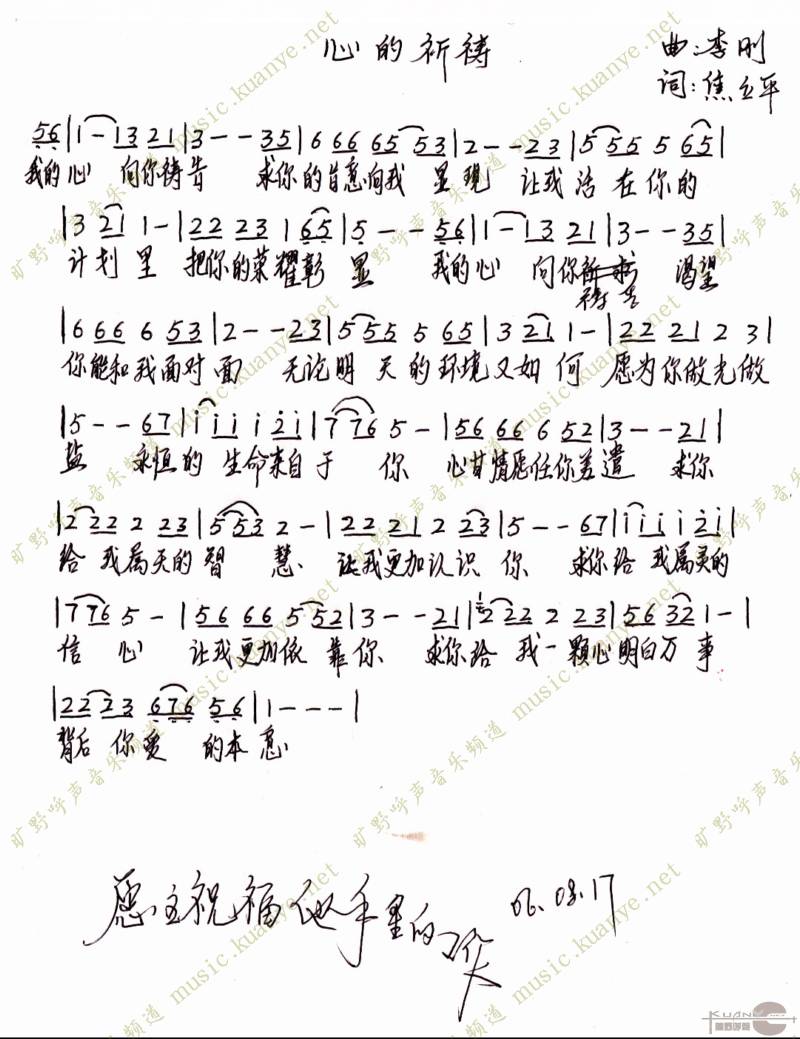 心的祈祷
曲:李刚
词:焦立平
56|1-13 21|3--35|6 66 65 53|2--23|5 55 5 65|
我的心 向你祷告 求你的旨意向我 显现 让我活在你的
|3 21 1-|22 23 1 65|5--56|1-13 21|3--35|
计划里 把你的荣耀彰显 我的心 向你祷告 渴望
|6 66 6 53|2--23|5 55 5 65|3 21 1-|22 21 2 3|
你能和我面对面 无论明天的环境又如何 愿为你做光做
|5--67|i ii i 2i|7 76 5-|56 66 6 52|3--21|
盐 永恒的生命来自于 你 心甘情愿任你差遣 求你
|2 22 2 23|5 53 2-|22 21 2 23|5--67|i ii i 2i|
给 我属天的智 慧 让我更加认识 你 求你给 我属灵的
|7 76 5-|56 66 5 52|3--21|2 22 2 23|56 32 1-|
信 心 让我更加依 靠你 求你给 我一颗心明白万 事
|22 23 676 56|1---|
背后 你爱 的本意
愿主祝福他手里的
06.08.17
旷野呼声音乐频道 music.kuanye.net
KUANYE
旷野呼声